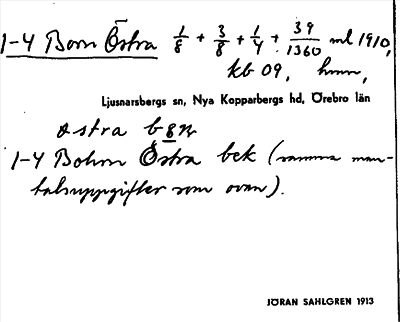 1-4 Born Östra 1/8 + 3/8 + 1/4 + 39/1360 ml 1910,
kb 09, hmn,
Ljusnarsbergs sn, Nya Kopparbergs hd, Örebro län
östra
1-4 Bohrn Östra bek (samma man-
talsuppgifter som ovan).
JÖRAN SAHLGREN 1913